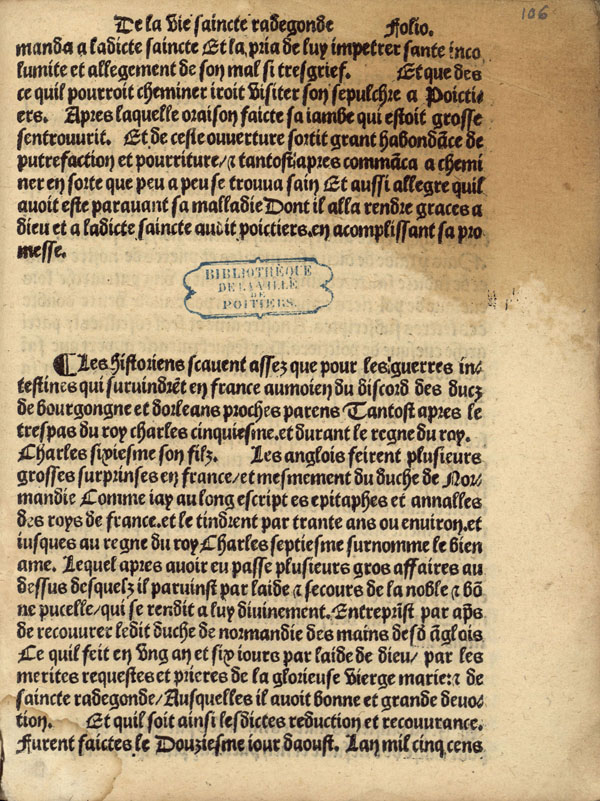 De la vie saincte radegonde Folio.
106
manda a ladicte saincte Et la pria de luy impetrer sante inco
lumite et allegement de son mal si tresgrief. Et que des
ce quil pourroit cheminer iroit visiter son sepulchre a Poicti⸗
ers. Apres laquelle oraison faicte sa iambe qui estoit grosse
sentrouurit. Et de ceste ouuerture sortit grant habondāce de
putrefaction et pourriture/⁊ tantost apres commāca a chemi
ner en sorte que peu a peu se trouua sain Et aussi allegre quil
auoit este parauant sa malladie Dont il alla rendre graces a
dieu et a ladicte saincte audit poictiers.en acomplissant sa pro
messe.
BIBLIOTHÈQUE
DE LA VILLE
DE
POITIERS.
¶Les historiens scauent assez que pour les guerres in⸗
testines qui suruindrēt en france au moien du discord des ducz
de bourgongne et dorleans proches parens Tantost apres le
trespas du roy charles cinquiesme.et durant le regne du roy.
Charles sixiesme son filz. Les anglois feirent plusieurs
grosses surprinses en france/et mesmement du duche de Nor⸗
mandie Comme iay au long escript es epitaphes et annalles
des roys de france.et le tindrent par trante ans ou enuiron.et
iusques au regne du roy Charles septiesme surnomme le bien
ame. Lequel apres auoir eu passe plusieurs gros affaires au
dessus desquelz il paruinst par laide ⁊ secours de la noble ⁊ bō
ne pucelle/qui se rendit a luy diuinement. Entreprīst par ap̄s
de recouurer ledit duche de normandie des mains desd̄ āglois
Ce quil feit en vng an et six iours par laide de dieu/ par les
merites requestes et prieres de la glorieuse vierge marie:⁊ de
saincte radegonde/Ausquelles il auoit bonne et grande deuo⸗
tion. Et quil soit ainsi lesdictes reduction et recouurance.
Furent faictes le Douziesme iour daoust. Lan mil cinq cens